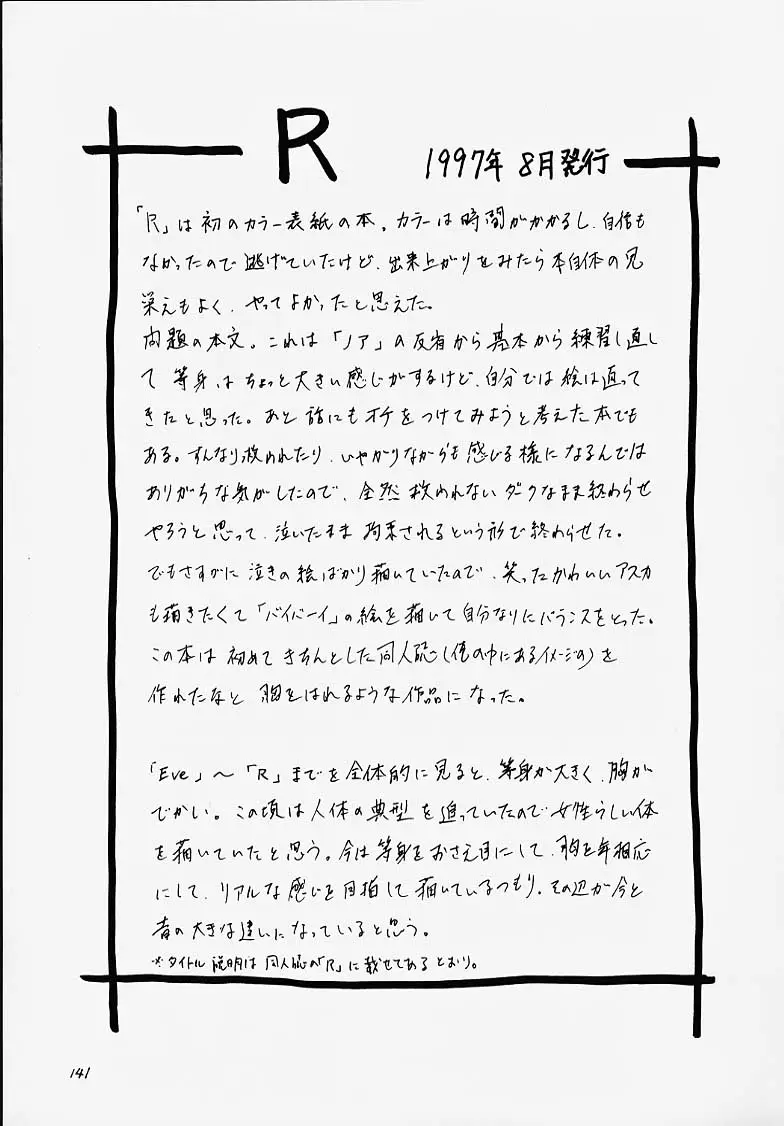 R
1997年 8月発行
「R」は初のカラー表紙の本。カラーは時間がかかるし、自信も
なかったので逃げていたけど、出来上がりをみたら本自体の見
栄えもよく、やってよかったと思えた。
問題の本文。これは「ノア」の反省から基本から練習し直し
て 等身はちょっと大きい感じがするけど、自分では絵は直って
きたと思った。あと話にもオチをつけてみようと考えた本でも
ある。すんなり救われたり、いやがりながらも感じる様になるんでは
ありがちな気がしたので、全然救われないダークなまま終わらせ
やろうと思って、泣いたまま 拘束されるという形で終わらせた。
でもさすがに泣きの絵ばかり描いていたので、笑ったかわいいアスカ
も描きたくて「バイバーイ」の絵を描いて自分なりにバランスをとった。
この本は 初めて きちんとした同人誌(俺の中にあるイメージの)を
作れたなと 胸をはれるような作品になった。
「Eve」〜「R」までを全体的に見ると、等身が大きく、胸が
でかい。この頃は人体の典型を追っていたので女性らしい体
を描いていたと思う。今は等身をおさえ目にして、胸を年相応
にして、リアルな感じを目指して描いているつもり。その辺が今と
昔の大きな違いになっていると思う。
※タイトル説明は同人誌の「R」に載せてあるとおり。
141